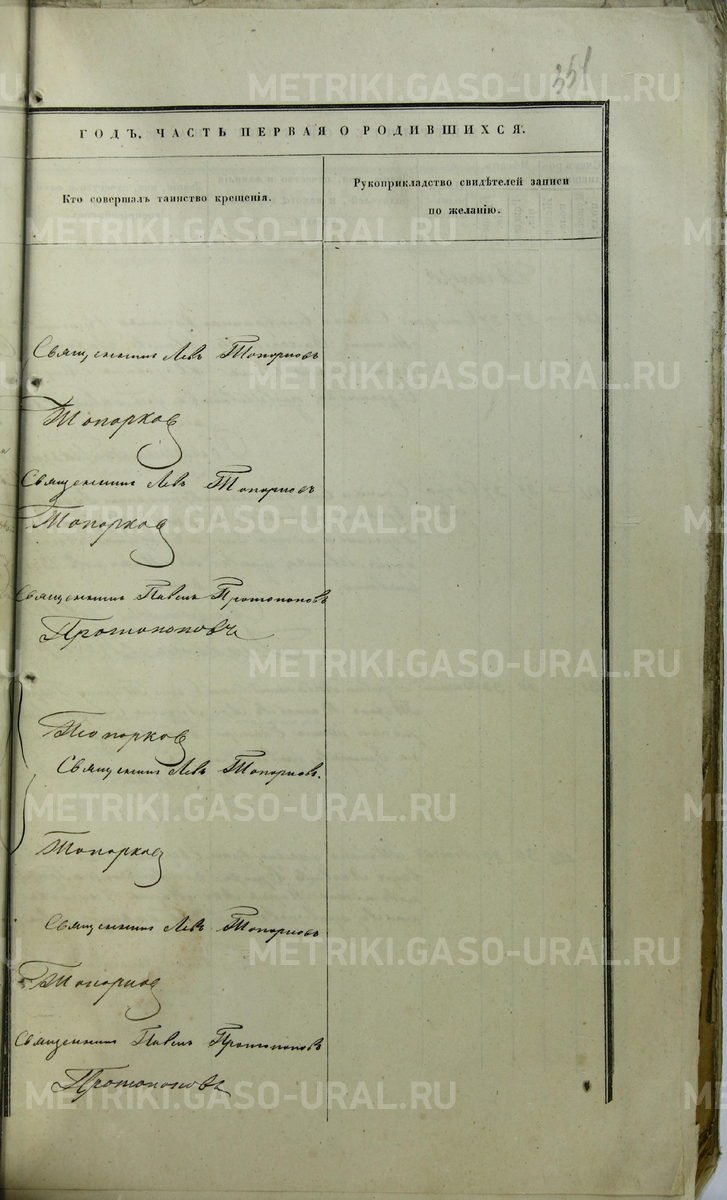 351
ГОДЪ, ЧАСТЬ ПЕРВАЯ О РОДИВШИХСЯ.
Кто совершалъ таинство крещенія.
Рукоприкладство свидѣтелей записи
по желанію.
Священникъ Левъ Топорковъ
Топорковъ
Священникъ Левъ Топорковъ
Топорковъ
Священникъ Павелъ Протопоповъ
Протопоповъ
Топорковъ
Священникъ Левъ Топорковъ.
Топорковъ
Священникъ Левъ Топорковъ
Топорковъ
Священникъ Павелъ Протопоповъ
Протопоповъ
METRIKI.GASO-URAL.RU
METRIKI.GASO-URAL.RU
METRIKI.GASO-URAL.RU
METRIKI.GASO-URAL.RU
METRIKI.GASO-URAL.RU
METRIKI.GASO-URAL.RU
METRIKI.GASO-URAL.RU
METRIKI.GASO-URAL.RU